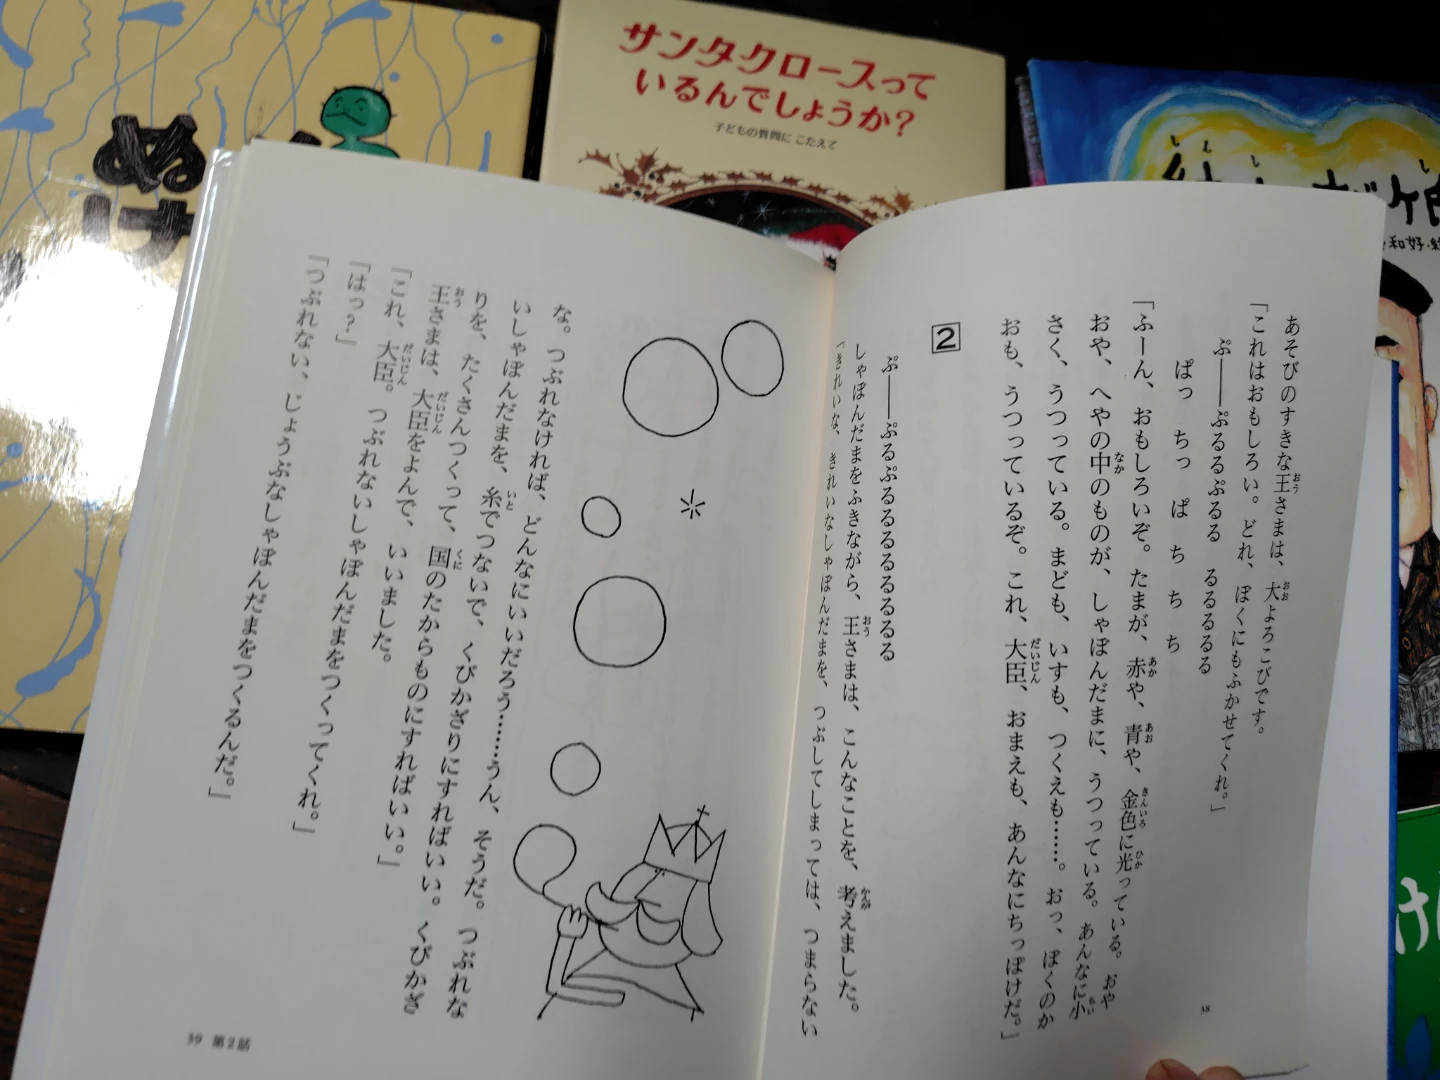 ぬ
け
サンタクロースって
いるんでしょうか?
子どもの質問に こたえて
和好・絵
あそびのすきな王さまは、大よろこびです。
「これはおもしろい。どれ、ぼくにもふかせてくれ。」
ぷ——ぷるるぷるる るるるるる
ぱっ ちっ ぱ ち ち ち
「ふーん、おもしろいぞ。たまが、赤や、青や、金色に光っている。おや
おや、へやの中のものが、しゃぼんだまに、うつっている。あんなに小
さく、うつっている。まども、いすも、つくえも……。おっ、ぼくのか
おも、うつっているぞ。これ、大臣、おまえも、あんなにちっぽけだ。」
2
ぷ——ぷるぷるるるるるるるる
しゃぼんだまをふきながら、王さまは、こんなことを、考えました。
「きれいな、きれいなしゃぼんだまを、つぶしてしまっては、つまらない
38
な。つぶれなければ、どんなにいいだろう……うん、そうだ。つぶれな
いしゃぼんだまを、糸でつないで、くびかざりにすればいい。くびかざ
りを、たくさんつくって、国のたからものにすればいい。」
王さまは、大臣をよんで、いいました。
「これ、大臣。つぶれないしゃぼんだまをつくってくれ。」
「はっ?」
「つぶれない、じょうぶなしゃぼんだまをつくるんだ。」
39 第2話